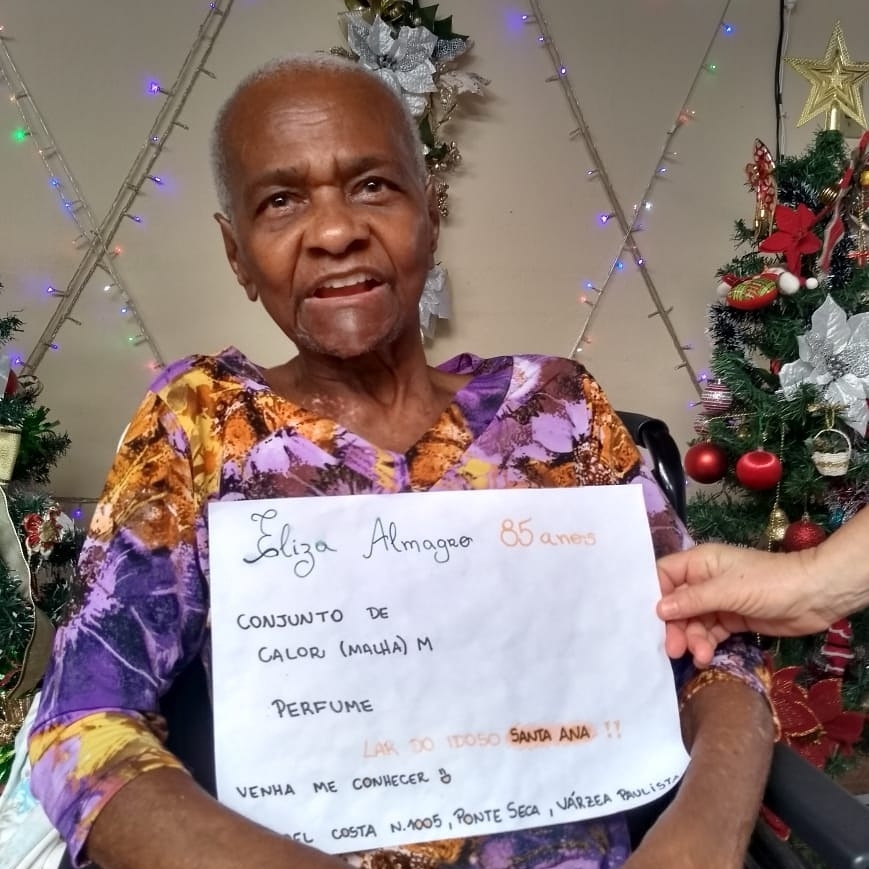 Eliza Almagro 85 anos
CONJUNTO DE
CALOR (MALHA) M
PERFUME
LAR DO IDOSO SANTA ANA !!
VENHA ME CONHECER
COSTA N.1005, PONTE SECA, VÁRZEA PAULISTA